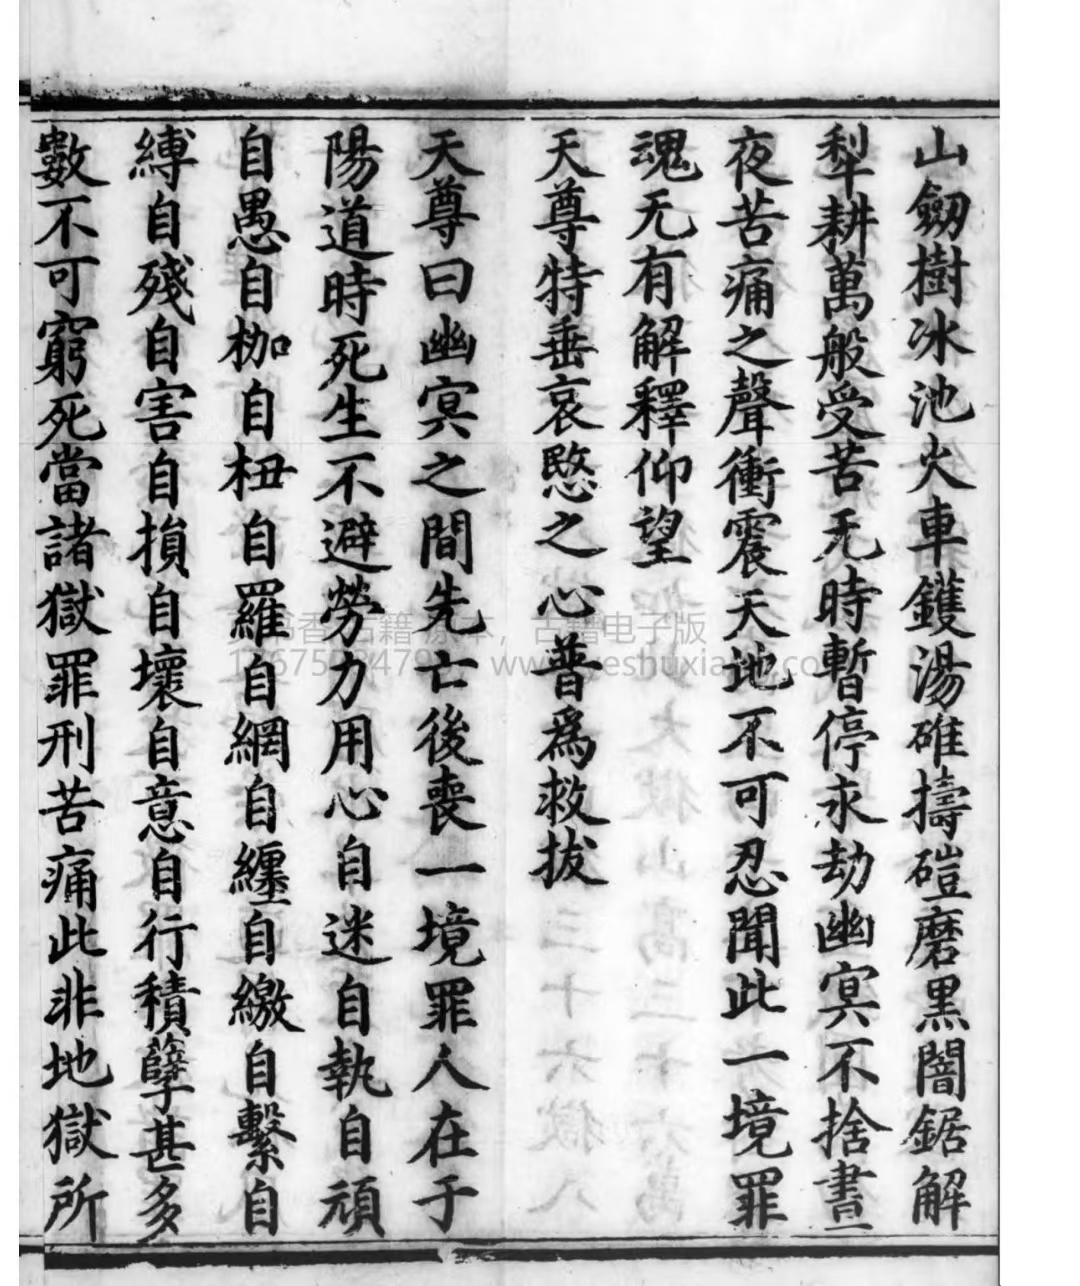 山劒樹冰池火車鑊湯碓擣磑磨黑闇鋸解
犁耕萬般受苦无時暫停永劫幽冥不捨晝
夜苦痛之聲衝震天地不可忍聞此一境罪
魂无有解釋仰望
天尊特垂哀愍之心普爲救拔
天尊曰幽冥之間先亡後喪一境罪人在于
陽道時死生不避勞力用心自迷自執自頑
自愚自枷自杻自羅自網自纏自繳自繫自
縛自殘自害自損自壞自意自行積孽甚多
數不可窮死當諸獄罪刑苦痛此非地獄所